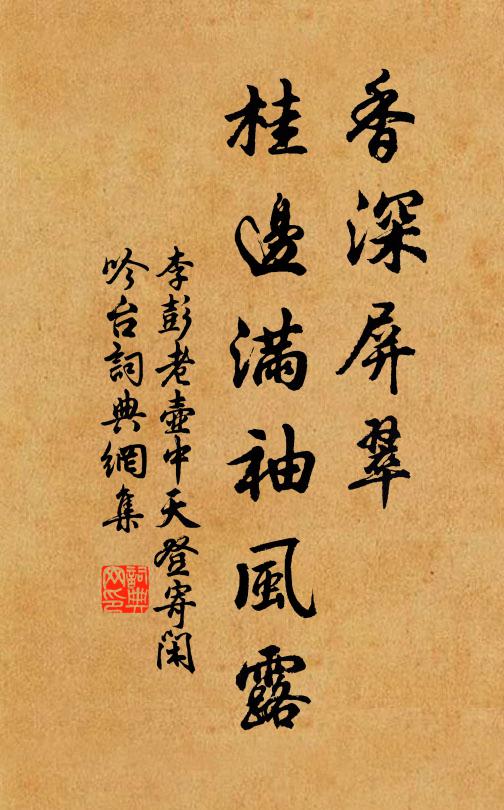 香深屏翠
桂邊滿袖風露
李彭老壺中天登寄閑
吟台詞典網集
詞典
网印